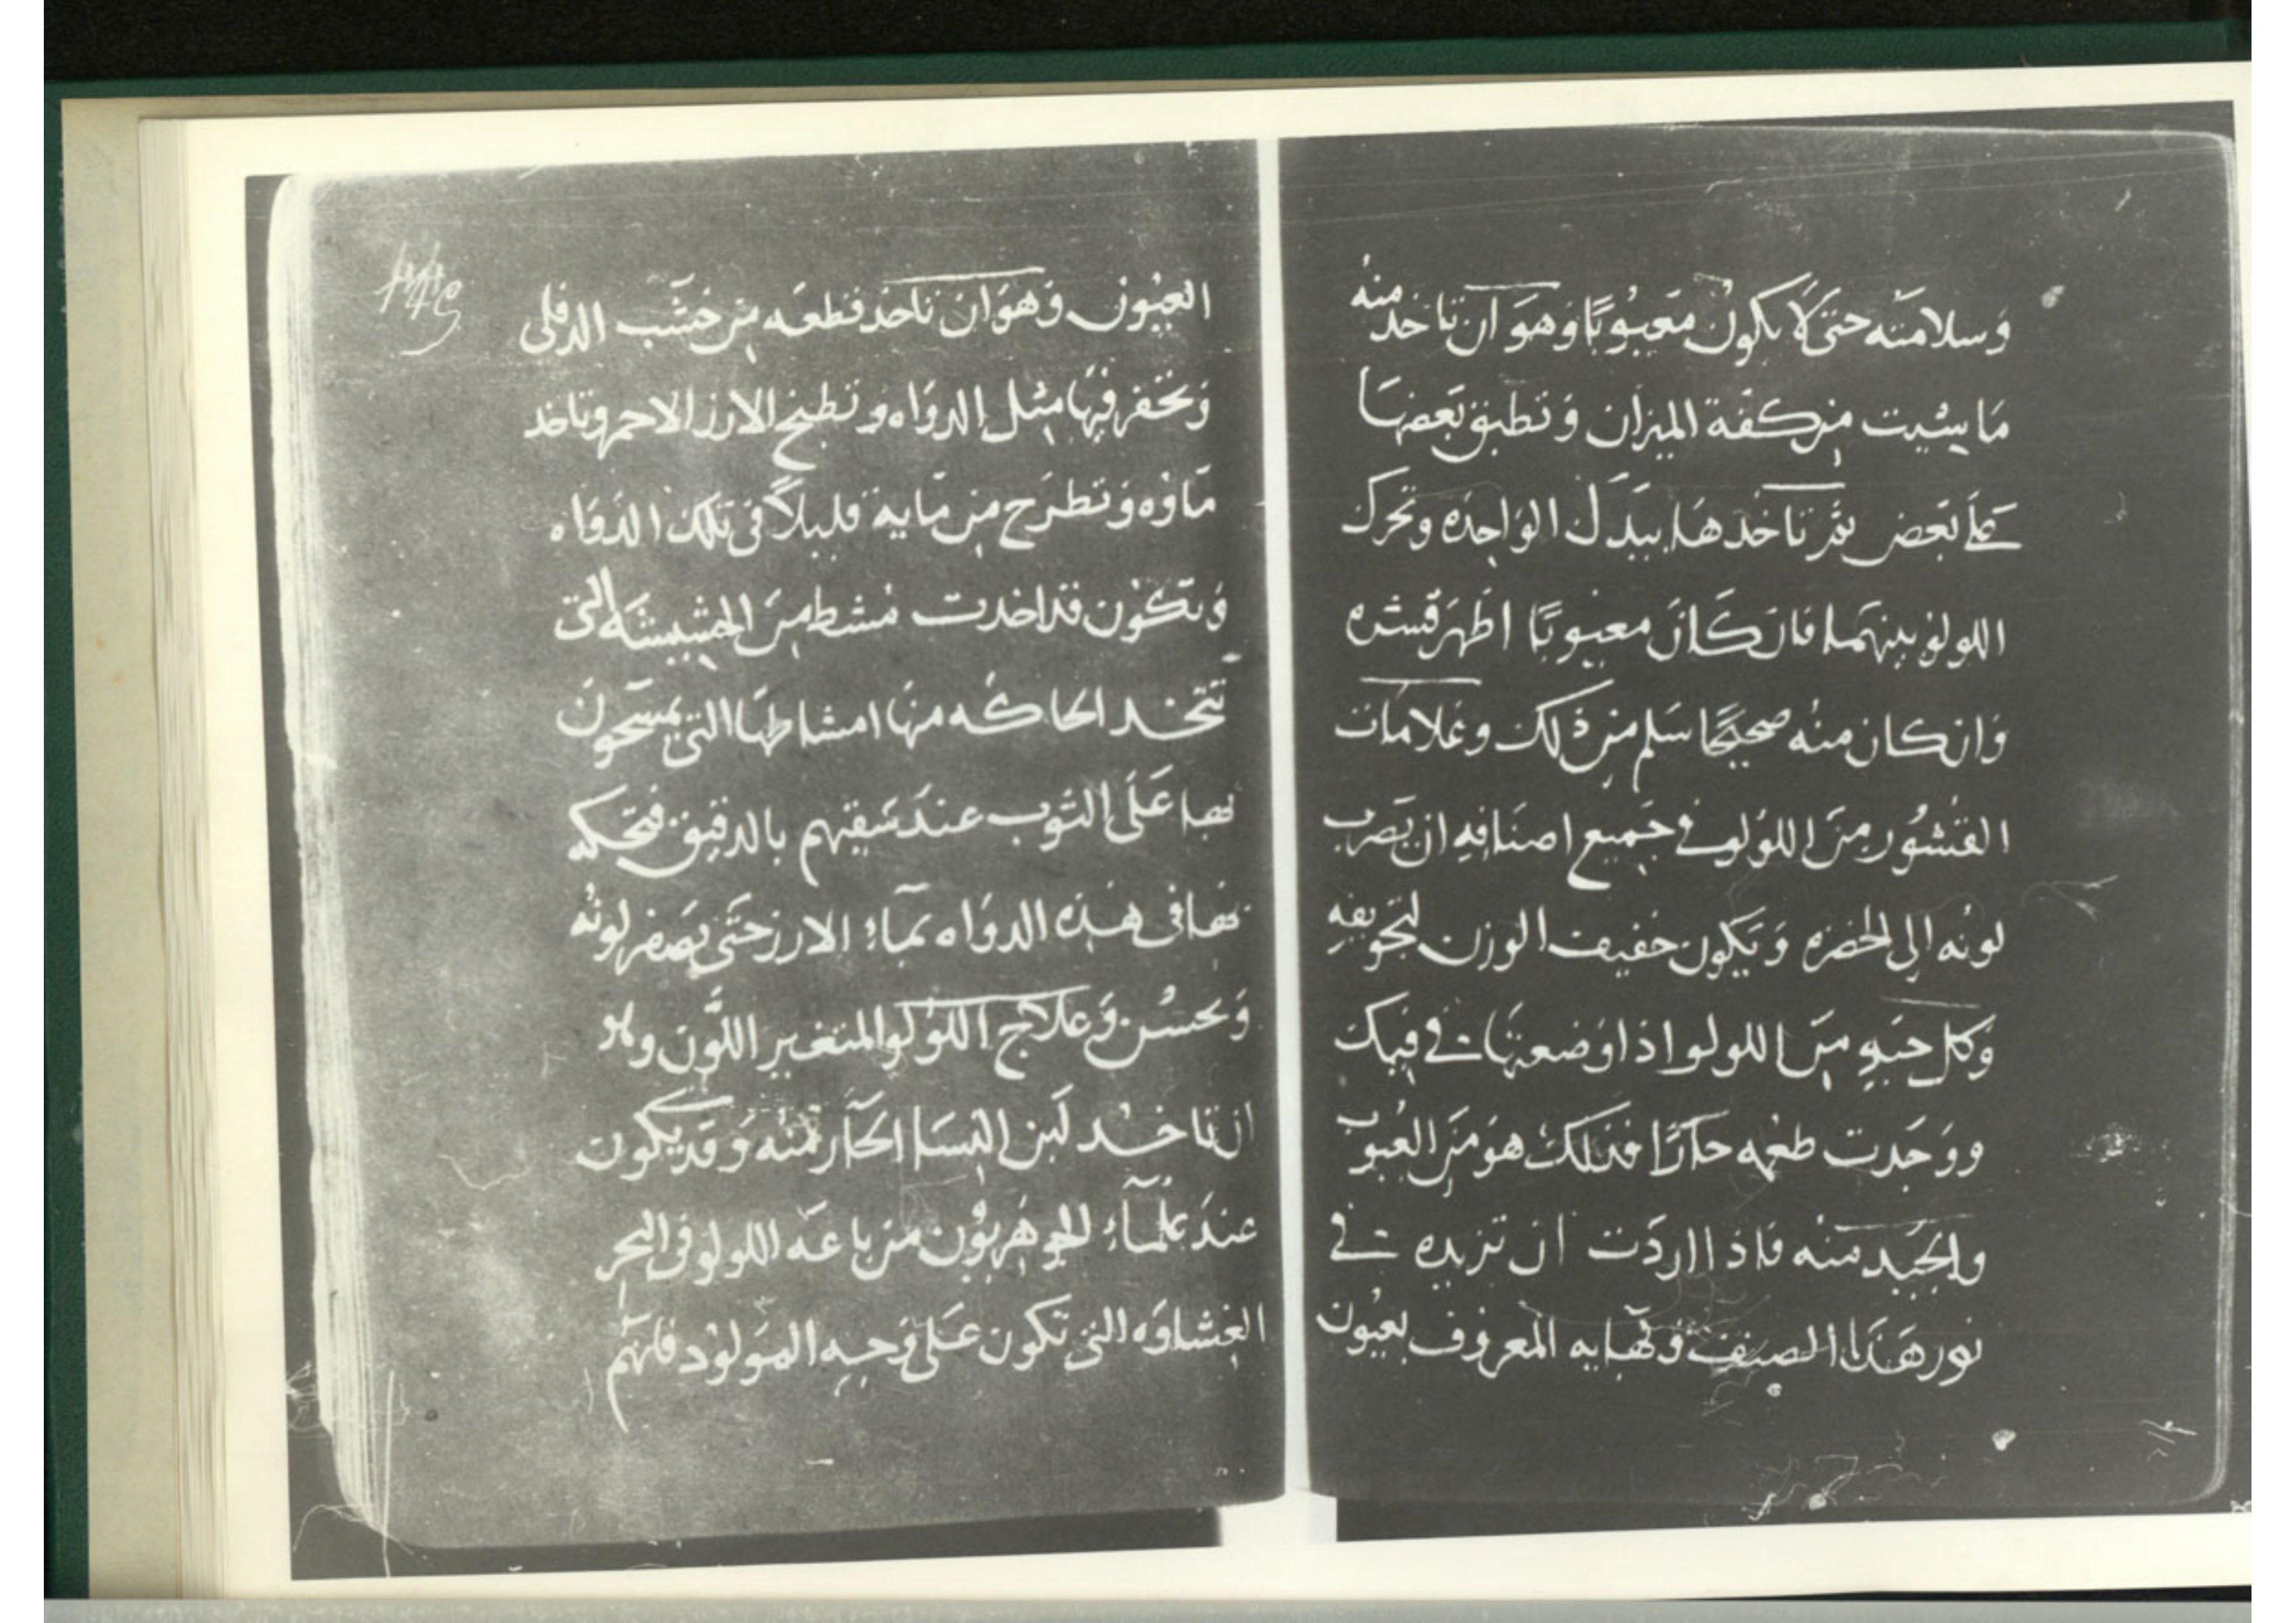 وسلامته حتى لا يكون معيوبًا وهو ان تاخد منه
ما شيت من كفة الميزان وتطبق بعضها
على بعض ثم تاخدها بيدك الواحده وتحرك
اللولو بينهما فان كان معيوبًا اظهر قشره
وان كان منه صحيحًا سلم من ذلك وعلامات
القشور من اللولو في جميع اصنافه ان يضرب
لونه الى الخضره ويكون خفيف الوزن لتجويفه
وكل حبه من اللولو اذا وضعتها في فيك
ووجدت طعمه حارًا فذلك هو من العيوب
والجيد منه فاذا اردت ان تزيده في
نور هذا الصنف وبهايه المعروف بعيون
العيون وهو ان تاخد قطعه من خشب الدفلى
وتحفر فيها مثل الدواه وتطبخ الارز الاحمر وتاخد
ماوه وتطرح من مايه قليلاً في تلك الدواه
وتكون قد اخدت مشط من الحشيشه التي
تتخد الحاكه منها امشاطها التي يمسحون
بها على الثوب عند سقيهم بالدقيق فتحكه
بها في هذه الدواه بماء الارز حتى يصفر لونه
ويحسن وعلاج اللولو المتغير اللون وهو
ان تاخد لبن النسا الحار منه وقد يكون
عند علماء الجوهريون من باعة اللولو في البحر
الغشاوه التي تكون على وجه المولود فانهم